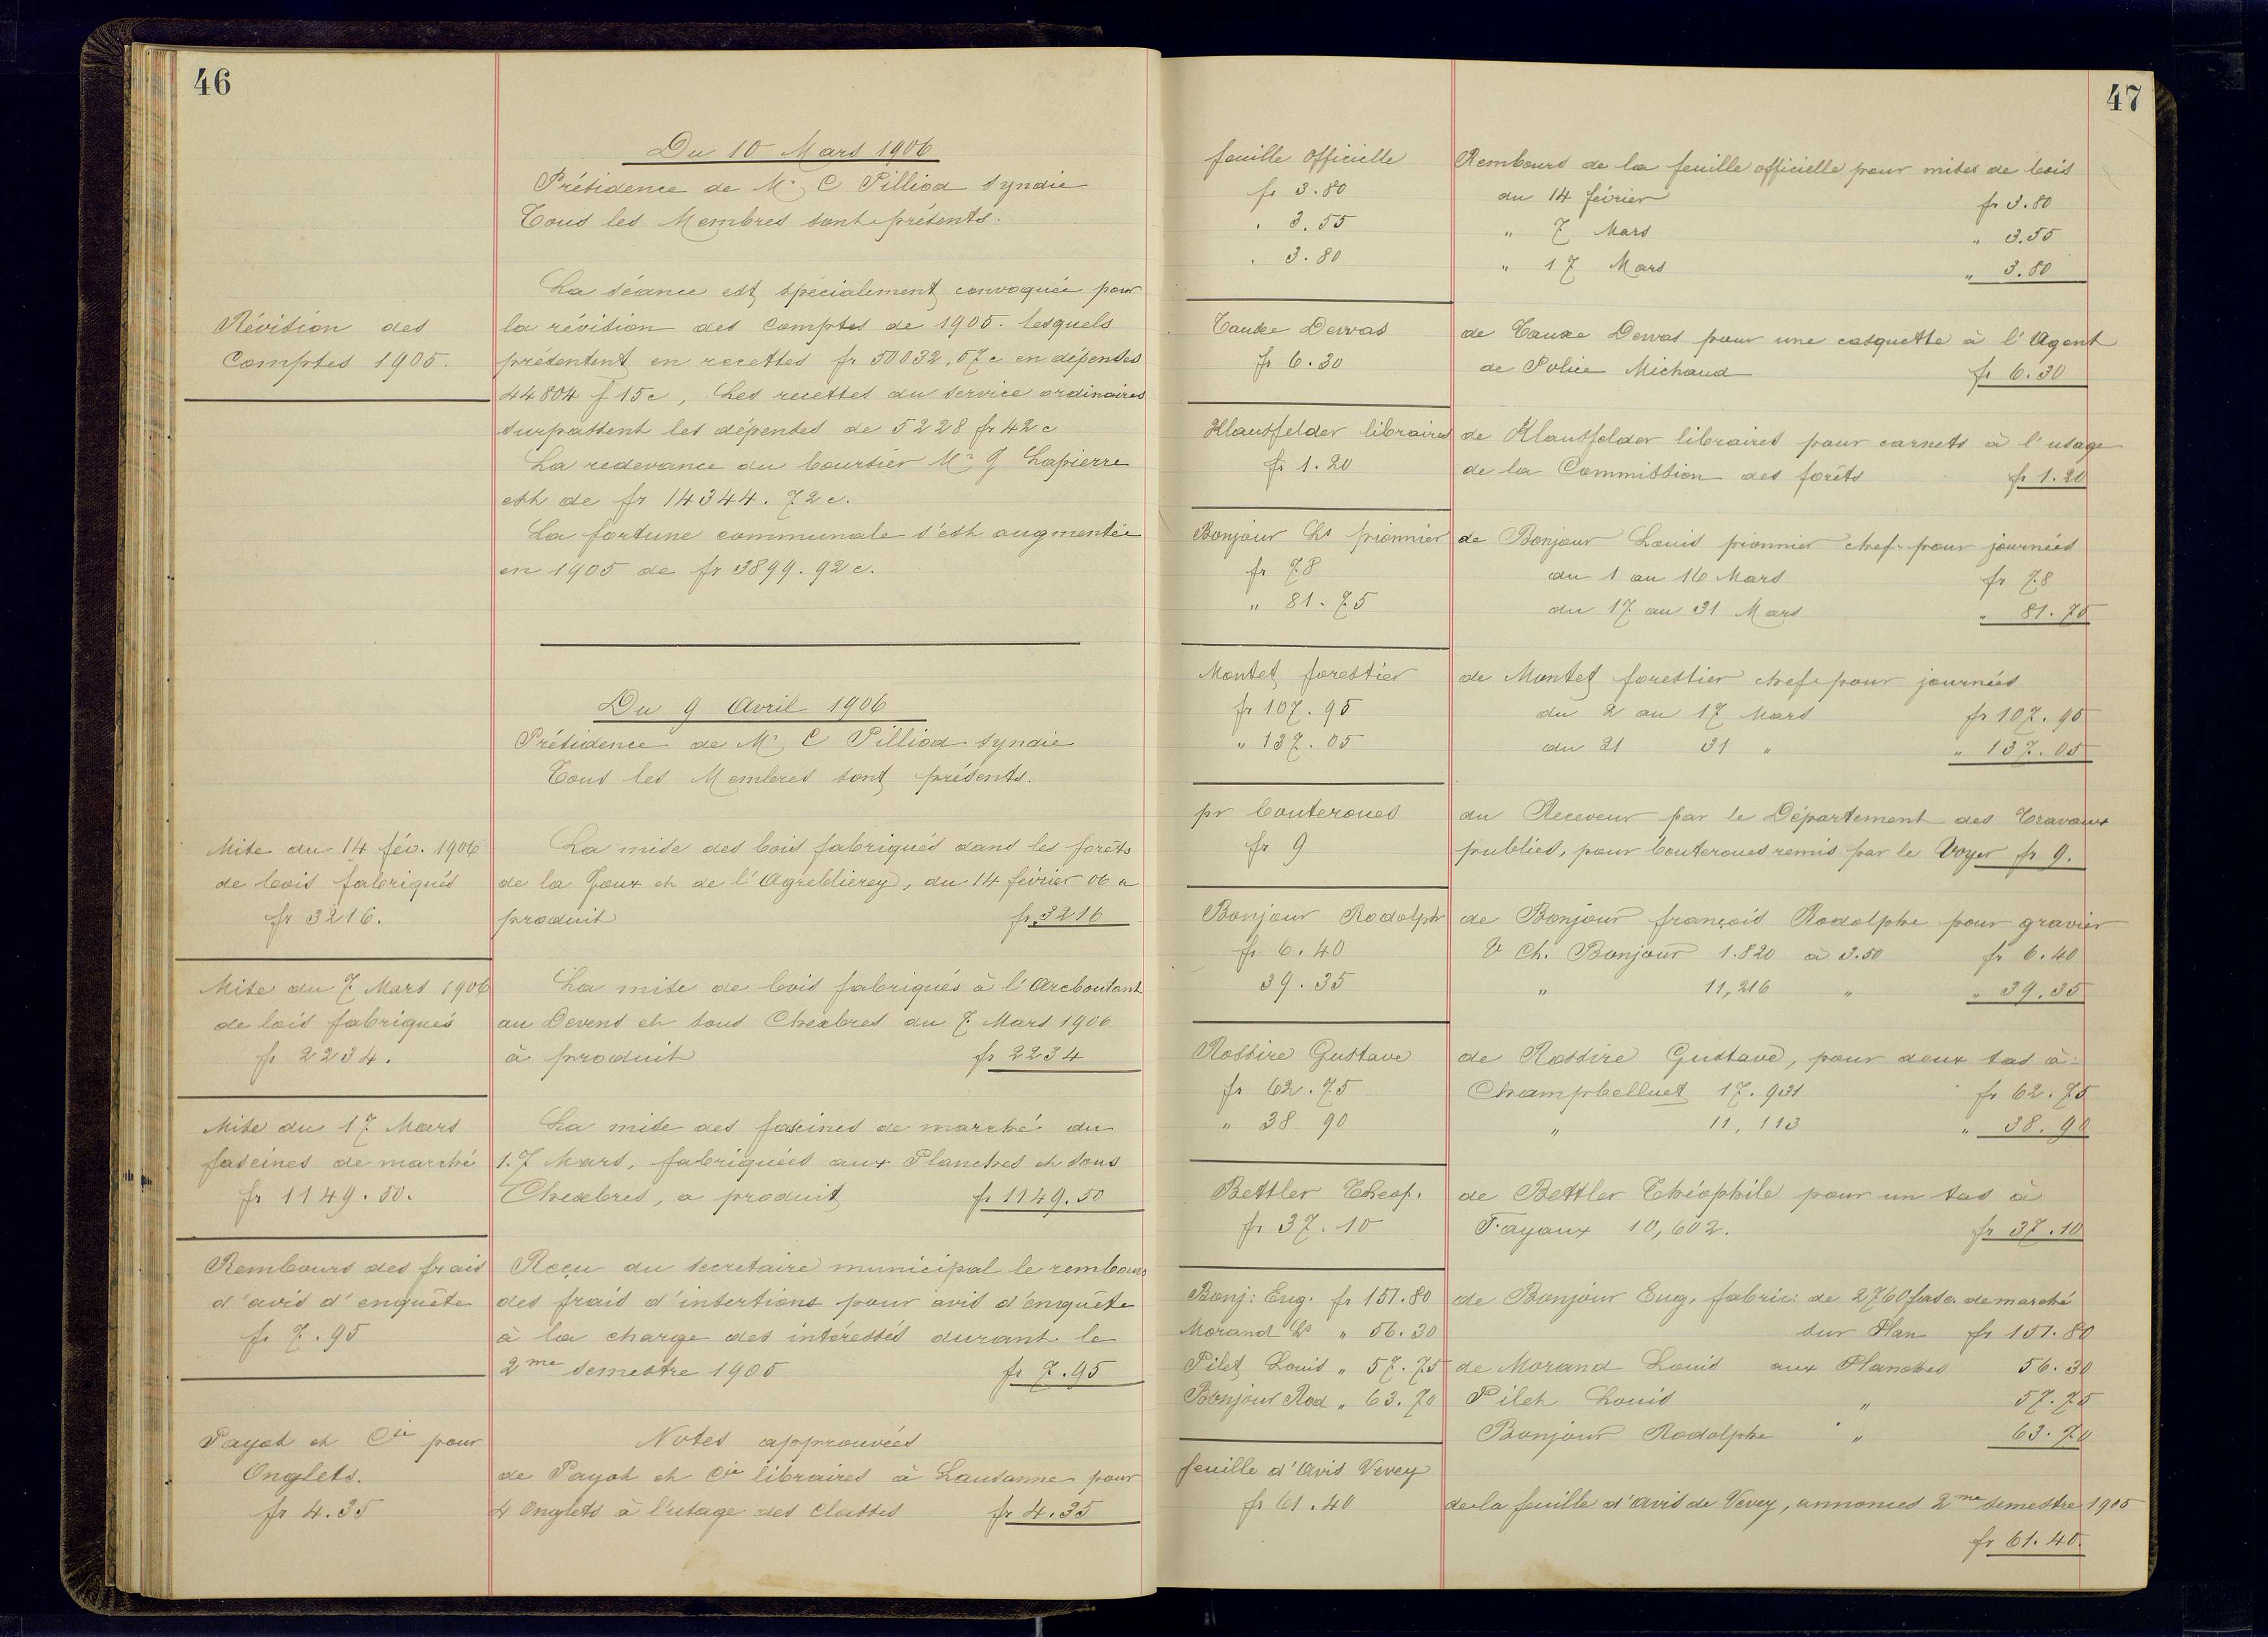 46
Du 10 Mars 1906
Présidence de Mr C Pilliod syndic
Tous les Membres sont présents.
Révision des
Comptes 1905.
La séance est spécialement convoquée pour
la révision des Comptes de 1905. lesquels
présentent en recettes fr 50032.57c en dépenses
44804 f 15c, Les recettes du service ordinaires
surpassent les dépenses de 5228 fr 42c
La redevance du boursier Mr J Lapierre
est de fr 14344.72c.
La fortune communale s'est augmentée
en 1905 de fr 3899.92c.
Du 9 Avril 1906
Présidence de Mr C Pilliod syndic
Tous les Membres sont présents.
Mise du 14 fév. 1906
de bois fabriqués
fr 3216.
La mise des bois fabriqués dans les forêts
de la Joux et de l'Agreblierey, du 14 février 06 a
produit fr 3216
Mise du 7 Mars 1906
de bois fabriqués
fr 2234.
La mise de bois fabriqués à l'Arcboutant
au Devens et sous Chexbres du 7 Mars 1906
à produit fr 2234
Mise du 17 Mars
fascines de marché
fr 1149.50.
La mise des fascines de marché du
17 Mars, fabriquées aux Planches et sous
Chexbres, a produit fr 1149.50
Rembours des frais
d'avis d'enquête
fr 7.95
Reçu du secretaire municipal le rembours
des frais d'insertions pour avis d'enquête
à la charge des intéressés durant le
2me semestre 1905 fr 7.95
Payot et Cie pour
Onglets.
fr 4.35
Notes approuvées
de Payot et Cie libraires à Lausanne pour
4 Onglets à l'usage des Classes fr 4.35
47
feuille Officielle
fr 3.80
" 3.55
" 3.80
Rembours de la feuille officielle pour mises de bois
du 14 février fr 3.80
" 7 Mars " 3.55
" 17 Mars " 3.80
Dewas
fr 6.30
de Dewas pour une casquette à l'Agent
de Police Michaud fr 6.30
Klausfelder libraires
fr 1.20
de Klausfelder libraires pour carnets à l'usage
de la Commission des forêts fr 1.20
Bonjour Ls pionnier
fr 78
" 81.75
de Bonjour Louis pionnier chef pour journées
du 1 au 16 Mars fr 78
du 17 au 31 Mars " 81.75
Montet forestier
fr 107.95
" 137.05
de Montet forestier chef pour journées
du 2 au 17 Mars fr 107.95
du 21 31 " " 137.05
pr bouteroues
fr 9
du Receveur par le Département des Travaux
publics, pour bouteroues remis par le Voyer fr 9.
Bonjour Rodolph
fr 6.40
39.35
de Bonjour françois Rodolphe pour gravier
V Ch. Bonjour 1.820 à 3.50 fr 6.40
" 11,216 " " 39.35
Rossire Gustave
fr 62.75
" 38 90
de Rossire Gustave, pour deux tas à
Champbelluet 17.931 fr 62.75
" 11,113 " 38.90
Bettler Théop.
fr 37.10
de Bettler Théophile pour un tas à
Fayaux 10,602. fr 37.10
Bonj: Eug. fr 151.80
Morand Ls " 56.30
Pilet Louis " 57.75
Bonjour Rod " 63.70
de Bonjour Eug, fabric: de 2760 fasc. de marché
sur Plan fr 151.80
de Morand Louis aux Planches 56.30
Pilet Louis " 57.75
Bonjour Rodolphe " 63.70
feuille d'Avis Vevey
fr 61.40
de la feuille d'avis de Vevey, annonces 2me semestre 1905
fr 61.40